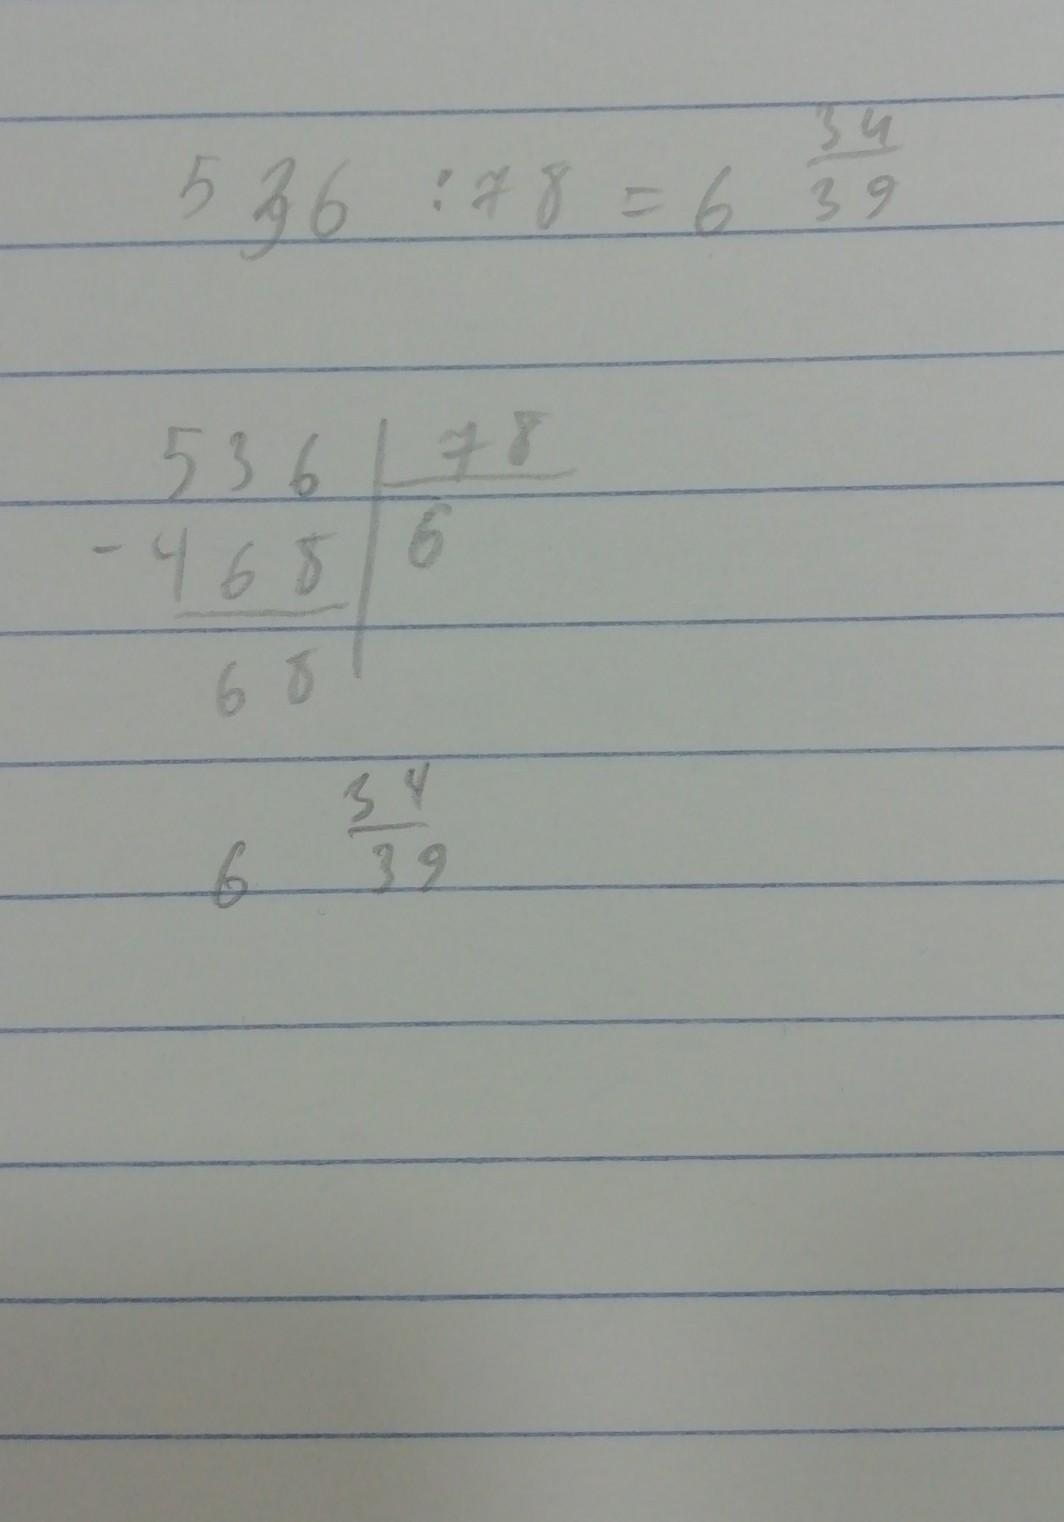 536 : 78 = 6 34/39
536 | 78
- 468 | 6
68
6 34/39